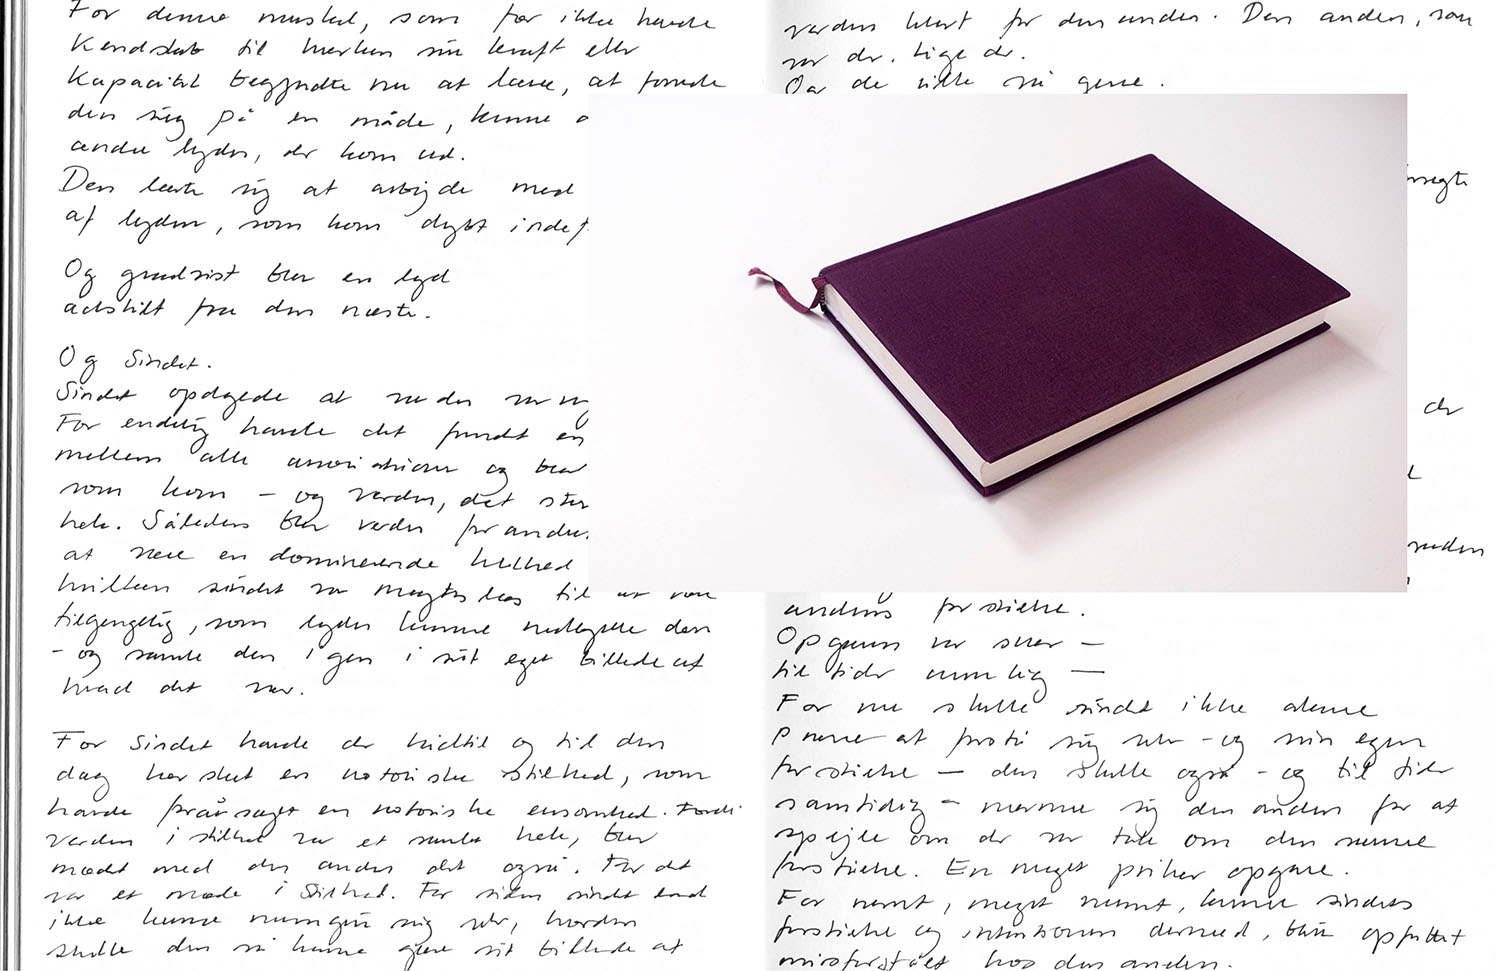 For denne muskel, som før ikke havde
Kendskab til hverken sin kraft eller
Kapacitet begyndte nu at lære, at formede
den sig på en måde, kunne
andre lyde, der kom ud.
Den lærte sig at arbejde med
af lyden, som kom dybt indef
Og gradvist blev en lyd
adskilt fra den næste.
Og Sindet.
Sindet opdagede at verden var
For endelig havde det fundet en
mellem alle
som kom – og verden, det store
hele. Således blev verden forandret
at være en dominerende helhed
hvilken sindet var magtesløs til at være
tilgængelig, som lyden kunne nedbryde den
– og samle den igen i sit eget billede af
hvad det var.
For Sindet havde der hidtil og til den
dag hersket en notorisk stilhed, som
havde forårsaget en notorisk ensomhed. Fordi
verden i stilhed var et samlet hele, blev
mødet med den anden det også. For det
var et møde i Stilhed. For siden sindet end
ikke kunne sig selv, hvordan
skulle den så kunne gøre sit billede af
verden klart for den anden. Den anden, som
var der. Lige der.
Og de ville så gerne.
der
verden
andens forståelse.
Opgaven var svær –
til tider umulig –
For nu skulle sindet ikke alene
prøve at forstå sig selv – og sin egen
forståelse – den skulle også – og til tider
samtidig – nærme sig den anden for at
spejle om der var tale om den samme
forståelse. En meget prikær opgave.
For nemt, meget nemt, kunne sindets
forståelse og intentionen dermed, blive opfattet
misforstået hos den anden.